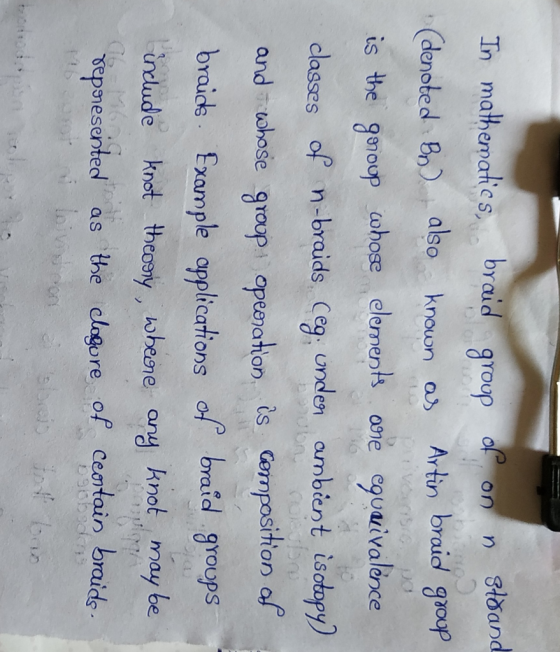 In mathematics, braid group of on n strand
(denoted Bn) also known as Artin braid group
is the group whose elements are equivalence
classes of n-braids (eg. under ambient isotopy)
and whose group operation is composition of
braids. Example applications of braid groups
include knot theory, where any knot may be
represented as the closure of certain braids.